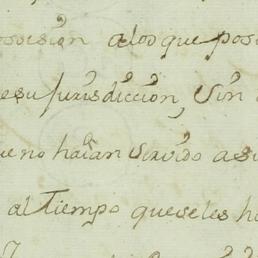 posesión alos que pose
esu Jurisdicción, Sin
ue no haian Servido a su
al Tiempo que seles h